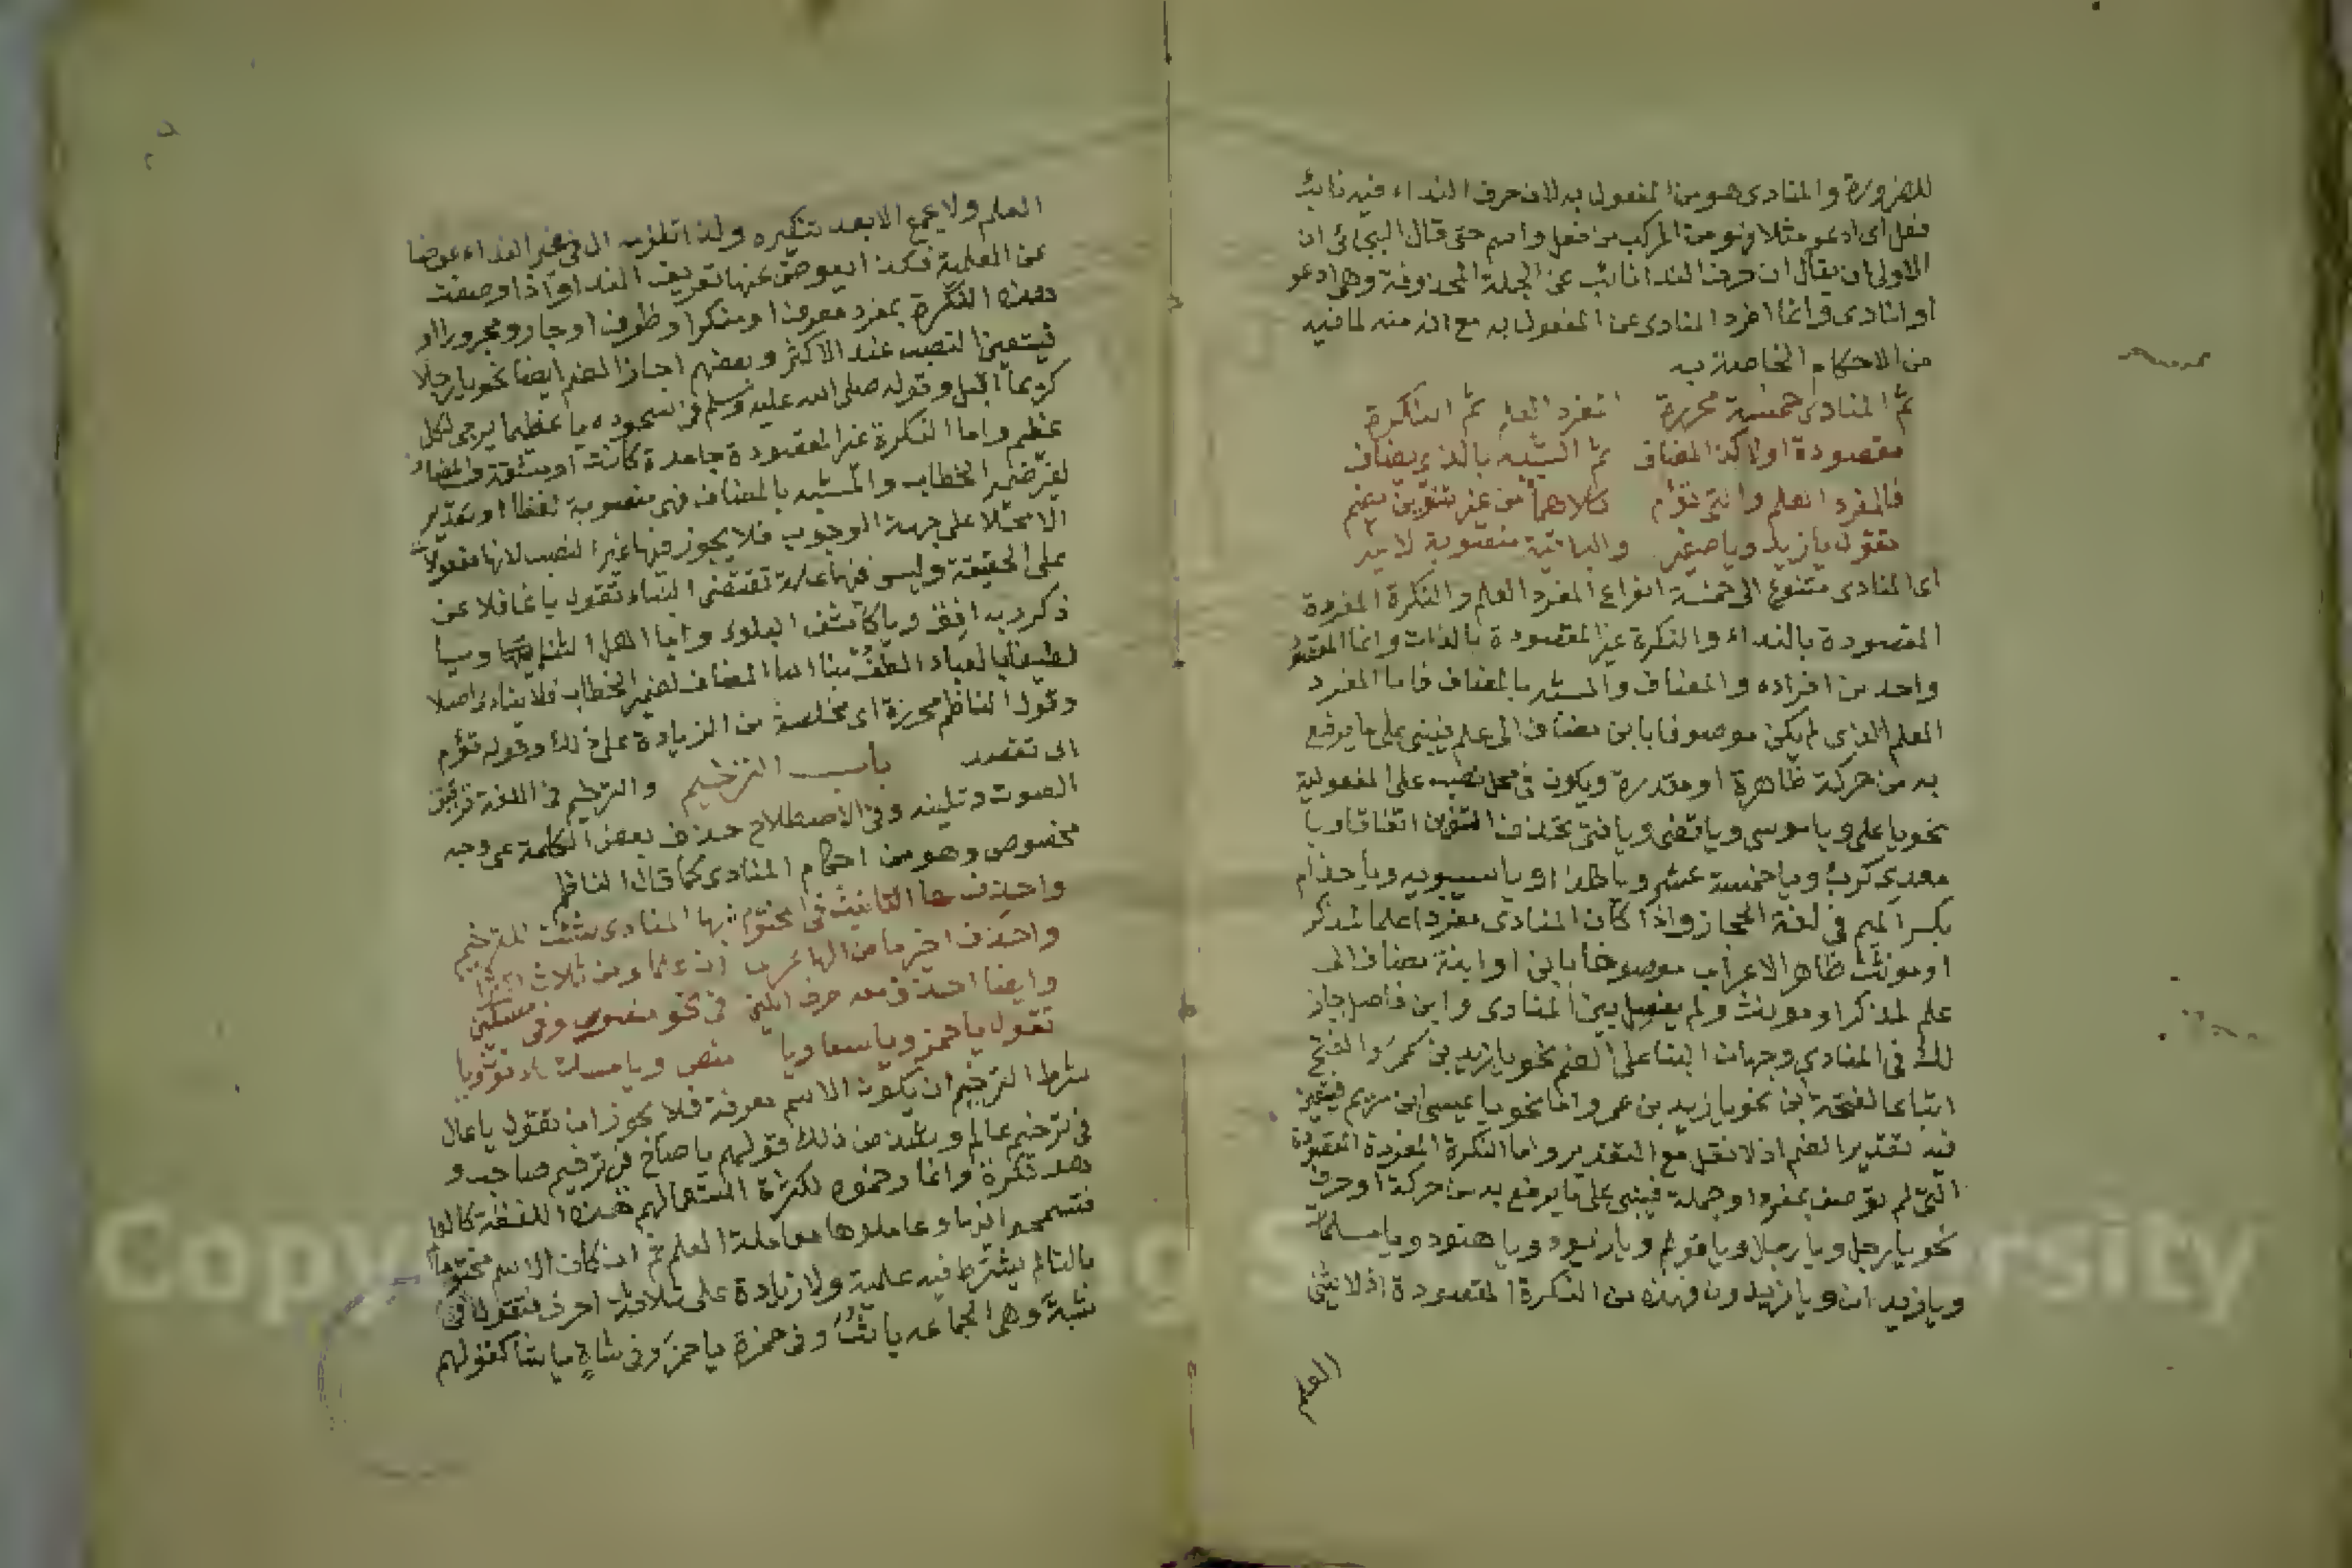 للضرورة والمنادى هو من المفعول به لان حرف النداء فيه نائب
فعل اى ادعو مثلا وهو من المركب من فعل واسم حتى قال البجائى ان
الاولى ان يقال ان حرف الندا نائب عن الجملة المحذوفة وهى ادعو
او انادى وانما افرد المنادى عن المفعول به مع انه منه لما فيه
من الاحكام الخاصة به
ثم المنادى خمسة محررة المفرد العلم ثم النكرة
مقصودة اولا كذا المضاف ثم الشبيه بالذى يضاف
فالمفرد العلم والتى تؤم كلاهما من غير تنوين يضم
تقول يا زيد ويا صغير والباقية منصوبة لا غير
اى المنادى متنوع الى خمسة انواع المفرد العلم والنكرة المفردة
المقصودة بالنداء والنكرة غير المقصودة بالذات وانما المقصود
واحد من افراده والمضاف والمشبه بالمضاف فاما المفرد
العلم الذى لم يكن موصوفا بابن مضاف الى علم فيبنى على ما يرفع
به من حركة ظاهرة او مقدرة ويكون فى محل نصب على المفعولية
نحو يا على ويا موسى ويا قاضى ويا فتى بحذف التنوين اتفاقا ويا
معدى كرب ويا خمسة عشر ويا سيبويه ويا حذام
بكسر الميم فى لغة الحجاز واذا كان المنادى مفردا علما لمذكر
او مونث ظاهر الاعراب موصوفا بابن او ابنة مضاف الى
علم لمذكر او مونث ولم يفصل بين المنادى وابن فاصل جاز
لك فى المنادى وجهان البنا على الضم نحو يا زيد بن عمر والفتح
اتباعا لفتحة ابن نحو يا زيد بن عمر واما نحو يا عيسى ابن مريم فيتعين
فيه تقدير الضم اذ لا ثقل مع التقدير واما النكرة المفردة المقصودة
التى لم توصف بمفرد او جملة فيبنى على ما يرفع به من حركة او حرف
نحو يا رجل ويا رجلا ويا قوم ويا زيود ويا هنود ويا مسلمات
ويا زيدان ويا زيدون وهذه من النكرة المقصودة اذ لا يثنى
العلم
العلم ولا يجمع الا بعد تنكيره ولذا تلزمه ال فى غير النداء عوضا
عن العلمية فكذا يعوض عنها تعريف الندا واذا وصفت
هذه النكرة بمفرد معرفا او منكرا او ظرف او جار ومجرور او
فيتعين النصب عند الاكثر وبعضهم اجاز الضم ايضا نحو يا رجلا
كريما اقبل وقوله صلى الله عليه وسلم فى السجود يا عظيما يرجى لكل
عظيم واما النكرة غير المقصودة جامدة كانت او مشتقة والمضاف
لغير ضمير الخطاب والمشبه بالمضاف فهى منصوبة لفظا او تقديرا
لا محلا على جهة الوجوب فلا يجوز فيها غير النصب لانها مفعولات
على الحقيقة وليس فيها علة تقتضى البناء تقول يا غافلا عن
ذكر ربه افق ويا كاشف البلوى ويا
لطيفا بالعباد الطف بنا اما المضاف لضمير الخطاب فلا ينادى اصلا
وقول الناظم محررة اى مخلصة من الزيادة على ذلك وقوله تؤم
اى تقصد باب الترخيم والترخيم فى اللغة ترقيق
الصوت وتليينه وفى الاصطلاح حذف بعض الكلمة على وجه
مخصوص وهو من احكام المنادى كما قال الناظم
واحذف ها التانيث فى مختوم بها المنادى للترخيم
واحذف اخر ما من الها عرى ان علما من ثلاث
وايضا احذف معه حرف اللين فى نحو منصور وفى مسكين
تقول يا حمز ويا سعا ويا منص ويا مسك
شرط الترخيم ان يكون الاسم معرفة فلا يجوز ان تقول يا عال
فى ترخيم عالم ويشذ من ذلك قولهم يا صاح فى ترخيم صاحب و
هو نكرة وانما رخموه لكثرة استعمالهم هذه اللفظة كالوا
وعاملوها معاملة العلم ثم ان كان الاسم مختوما
بالتا لم يشترط فيه علمية ولا زيادة على ثلاثة احرف فتقول فى
ثبة وهى الجماعه يا ثب وفى حمزة يا حمز وفى شاة يا شا كقولهم